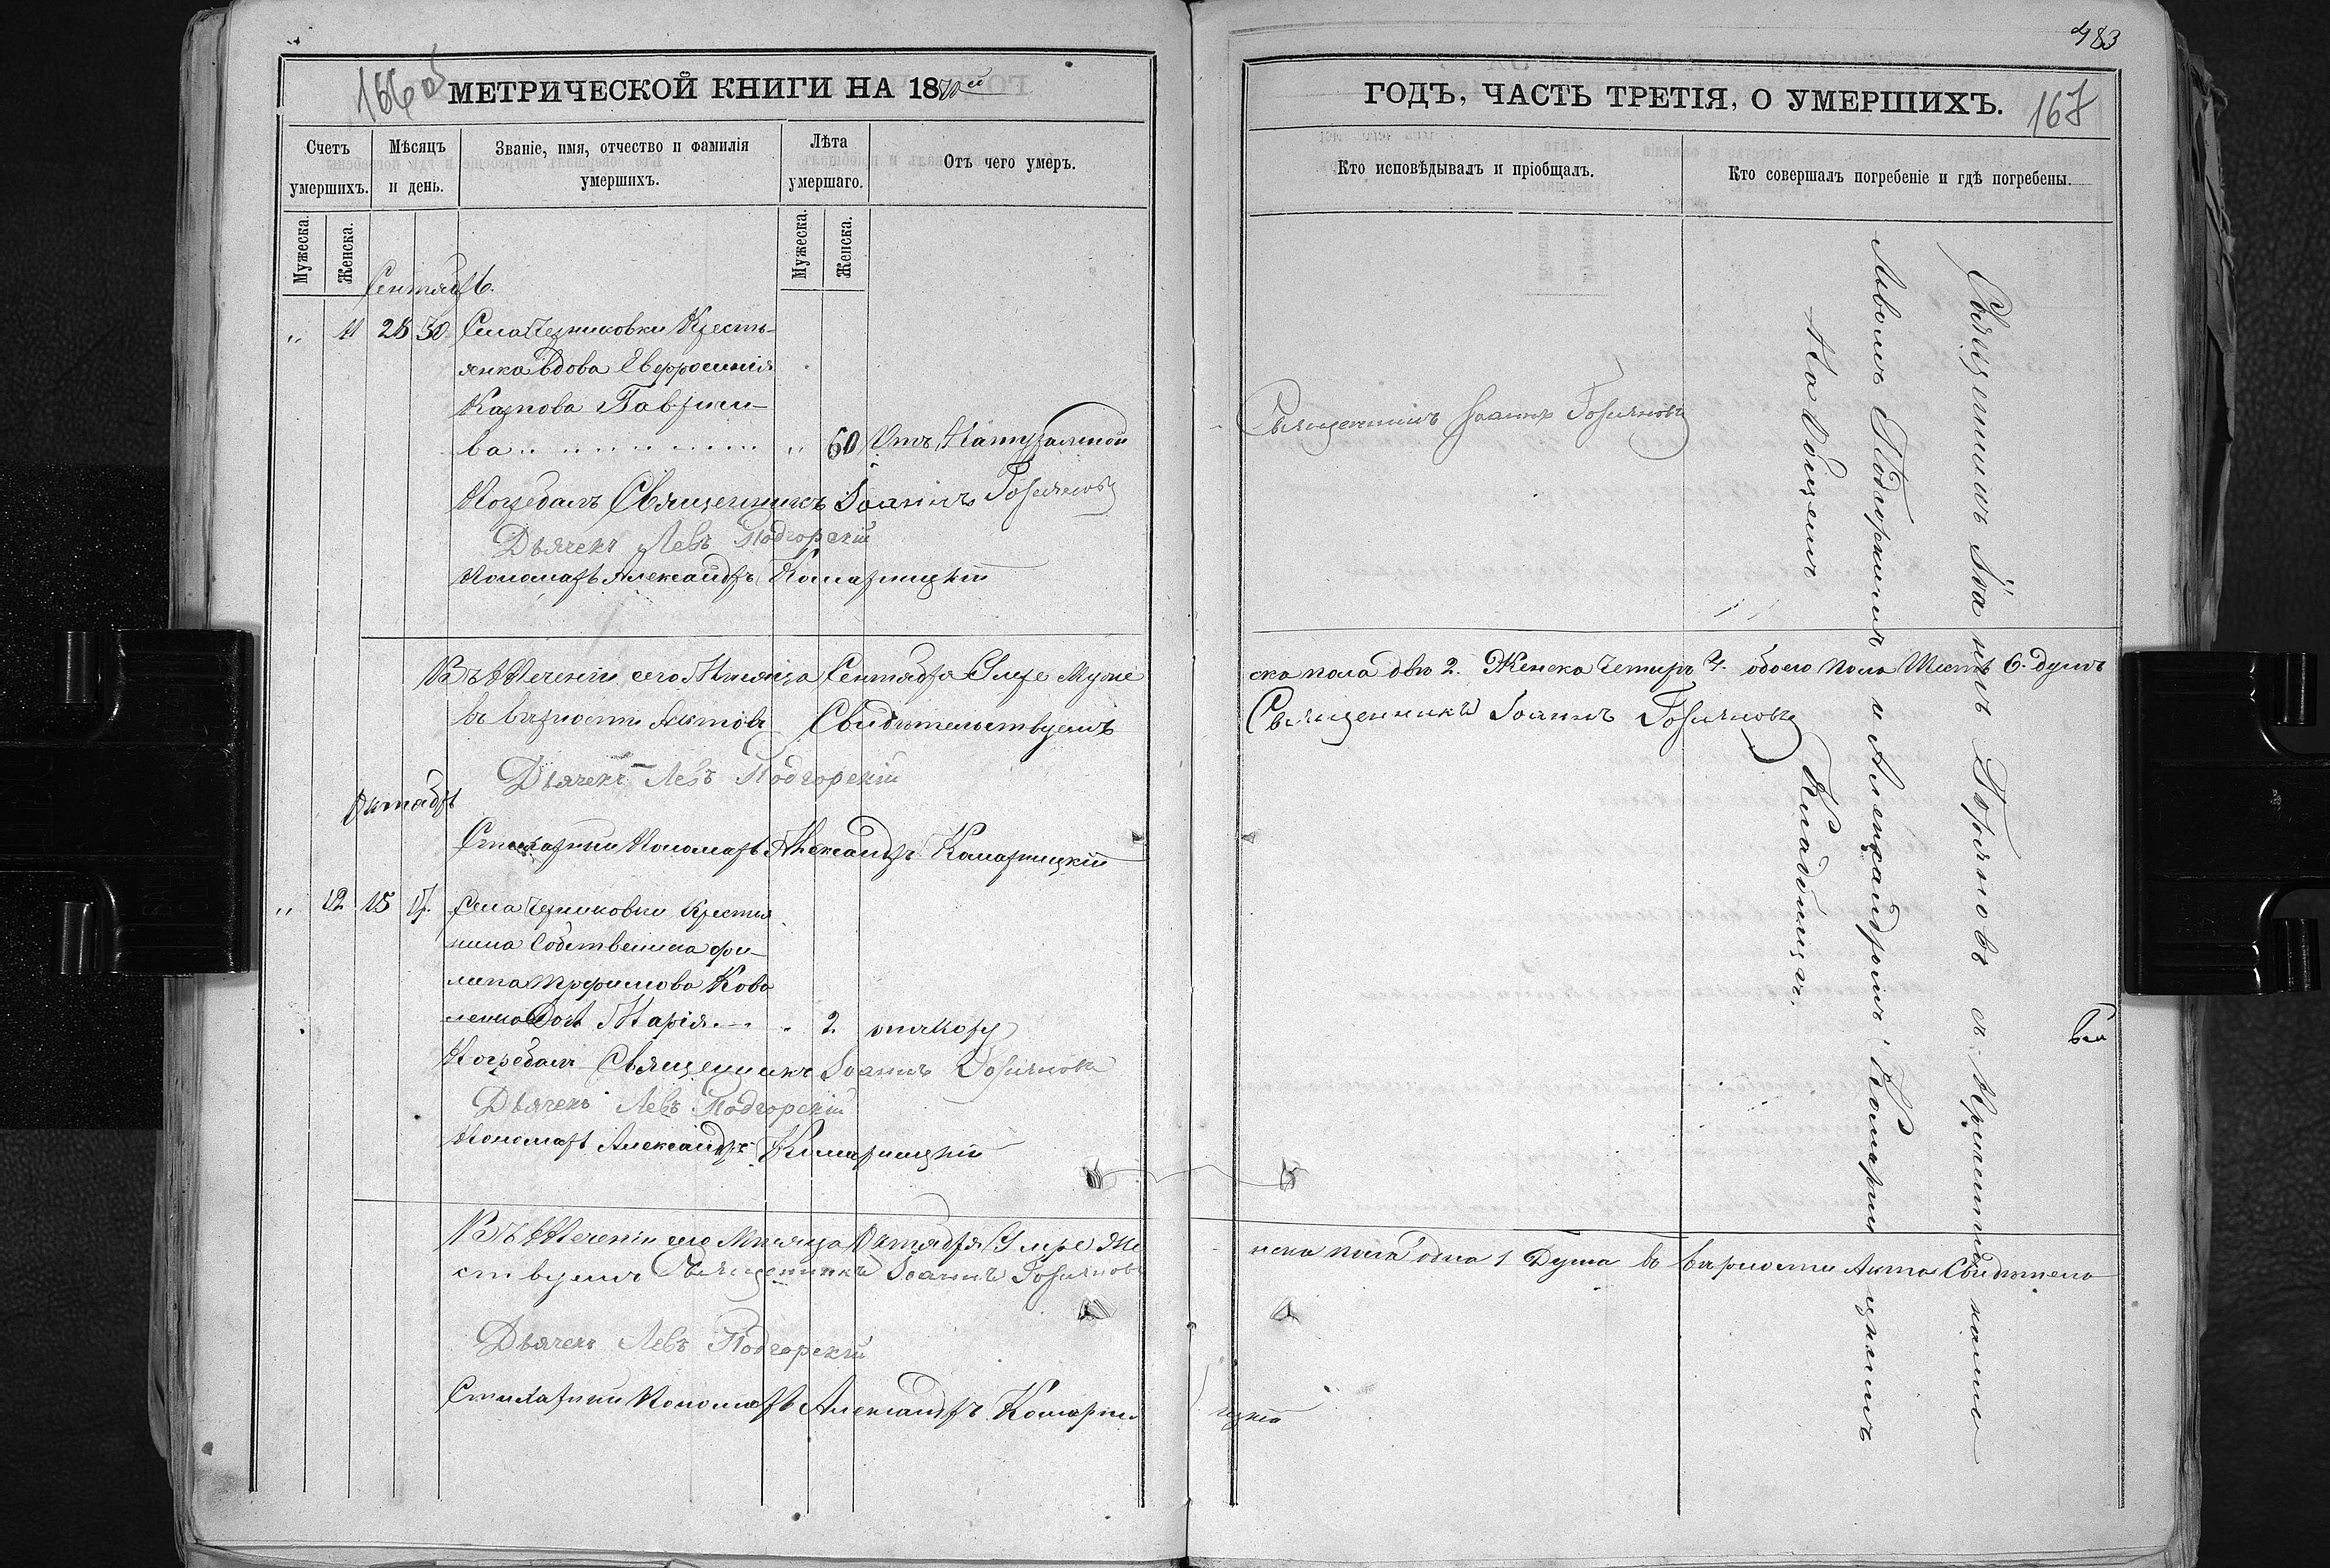 166 об
МЕТРИЧЕСКОЙ КНИГИ НА 1870й
Счетъ умершихъ.
Мѣсяцъ и день.
Званіе, имя, отчество и фамилія умершихъ.
Лѣта умершаго.
Отъ чего умеръ.
Мужеска.
Женска.
Мужеска.
Женска.
Сентябрь.
„ 11 28 30 Села Черниковки Кресть-
янка вдова Евфросинія
Карпова
ва „ 60 Отъ Натуральной
Погребалъ Священникъ Іоаннъ
Дьячекъ Левъ Подгорскій
Пономарь Александръ Комарницкій
Въ теченіи сего Мѣсяца Сентября Умре Муже
въ вѣрности Актовъ Свидѣтельствуемъ
Дьячекъ Левъ Подгорскій
Октябрь
Стихарный Пономарь Александръ Комарницкій
„ 12 15 17. Села Черниковки Крестья
нина Собственника Фи-
липа Трофимова Кова
ленка Дочь Марія „ 2 отъ кору
Погребалъ Священникъ Іоаннъ
Дьячекъ Левъ Подгорскій
Пономарь Александръ Комарницкій
Въ теченіи сего Мѣсяца Октября Умре Же
ствуемъ Священникъ Іоаннъ
Дьячекъ Левъ Подгорскій
Стихарный Пономарь Александръ Комарни
483
ГОДЪ, ЧАСТЬ ТРЕТІЯ, О УМЕРШИХЪ.
167
Кто исповѣдывалъ и пріобщалъ.
Кто совершалъ погребеніе и гдѣ погребены.
Священникъ Іоаннъ
Священникъ Іоаннъ съ Причетниками
Львомъ Подгорскимъ и Александромъ Комарницкимъ
На Общемъ Кладбищѣ.
ска пола двѣ 2. Женска Четыръ 4. обоего пола Шесть 6. душъ
Священникъ Іоаннъ
нска пола одна 1 Душа въ вѣрности Акта Свидѣтель
цкій